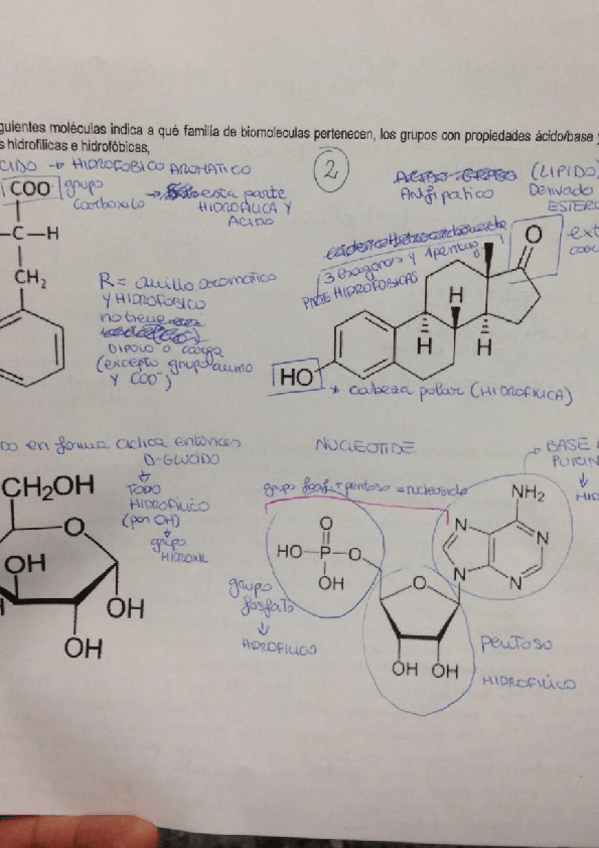 guientes moléculas indica a qué familia de biomoleculas pertenecen, los grupos con propiedades ácido/base y
s hidrofílicas e hidrofóbicas,
CIDO → HIDROFOBICO AROMATICO
COO grupo
Carboxilo
→ esta parte
HIDROFILICA Y
ACIDO
C—H
CH₂
R = anillo aromatico
Y HIDROFOBICO
no tiene
DIPOLO o carga
(excepto grupo amino
Y COO⁻)
2
(LIPIDO)
Anfipatico
Derivado
ESTERO
3 exagonos y 1 pentag
PARTE HIDROFOBICAS
O
H
H
H
HO
* cabeza polar (HIDROFILICA)
DO en forma ciclica entonces
D-GLUCIDO
TODO
HIDROFILICO
(por OH)
grupo
HIDROXIL
CH₂OH
O
OH
OH
OH
NUCLEOTIDE
grupo fosfa + pentosa = nucleosido
BASE
PURIN
NH₂
N
N
N
N
O
HO—P—O
OH
O
OH OH
grupo
fosfato
HIDROFILICO
PENTOSA
HIDROFILICO